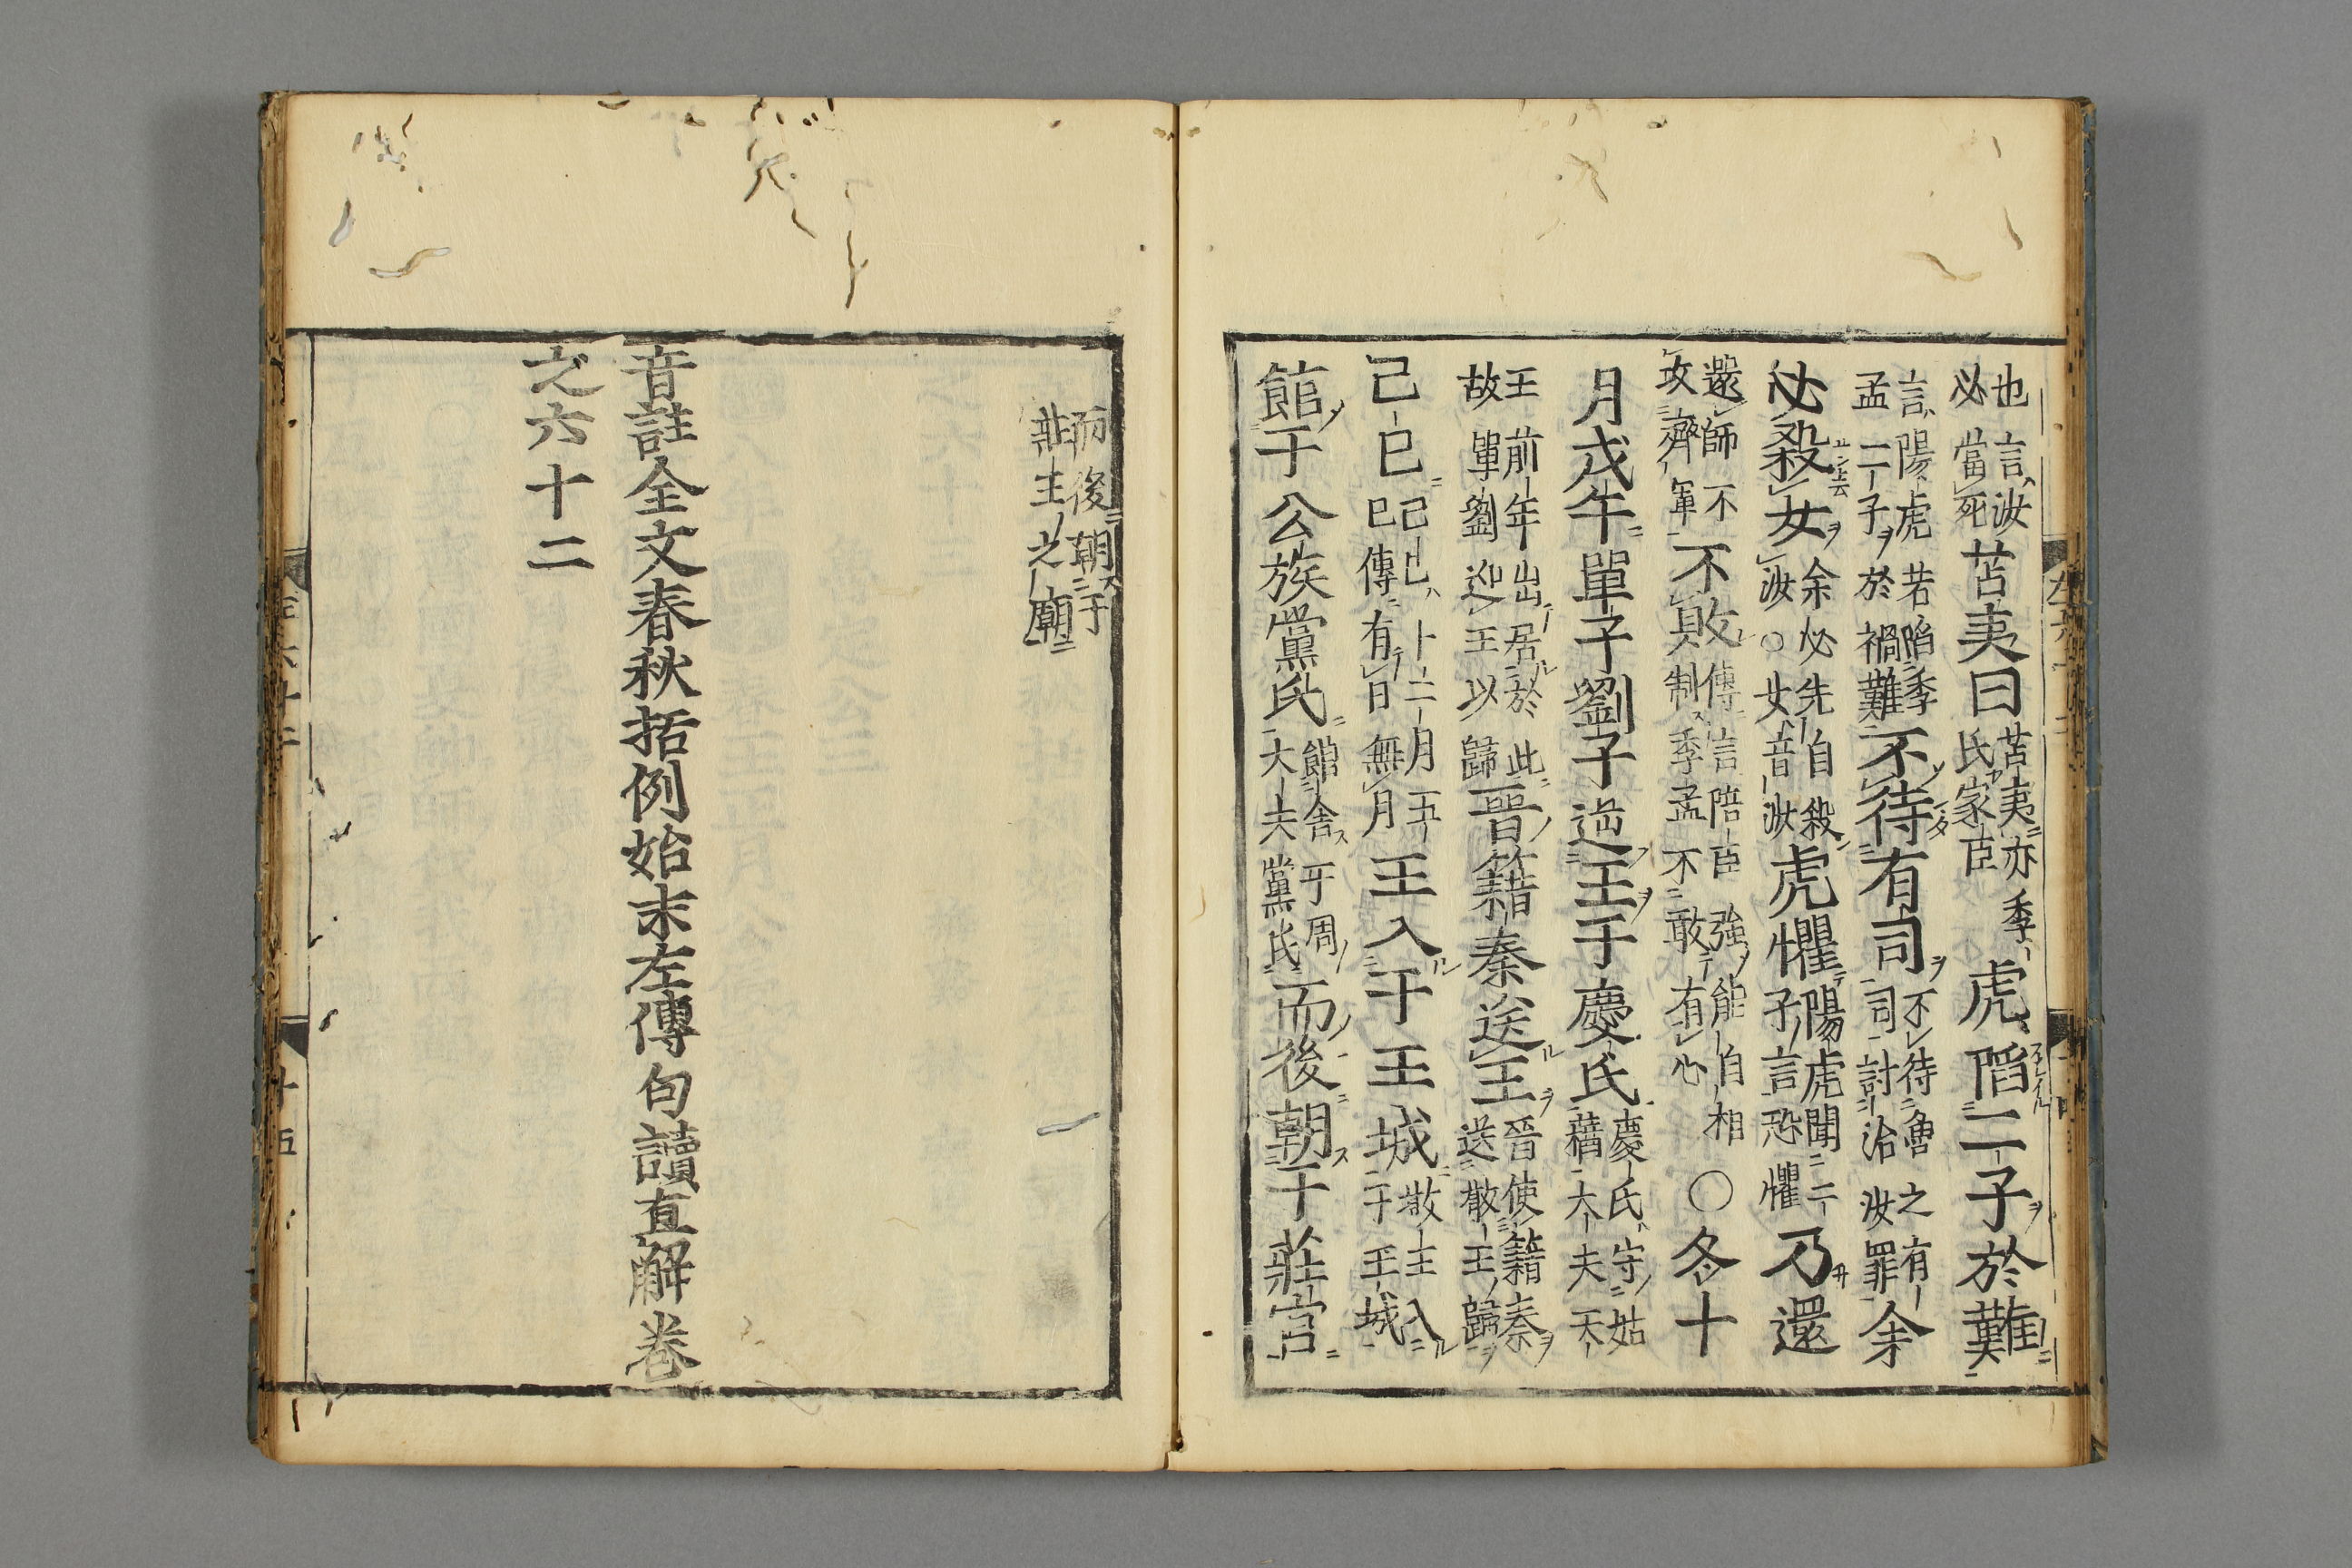 也言汝必當死苫夷曰苫夷亦季氏家臣虎陷二子於難
言陽虎若陷季孟二子於禍難不待有司不待魯之有司討治汝罪余
必殺女余必先自殺汝○女音汝虎懼陽虎聞二子言恐懼乃還
還師不攻齊軍不敗傳言陪臣強能自相制季孟不敢有心○冬十
月戊午單子劉子逆王于慶氏慶氏守姑蕕大夫天
王前年出居於此故單劉迎王以歸晉籍秦送王晉使籍秦送敬王歸
己巳己巳卜二月五巳傳有日無月王入于王城敬王入于王城
館于公族黨氏館舍于周大夫黨氏而後朝于莊宮
而後朝于莊王之廟
音註全文春秋括例始末左傳句讀直解卷
之六十二
十五